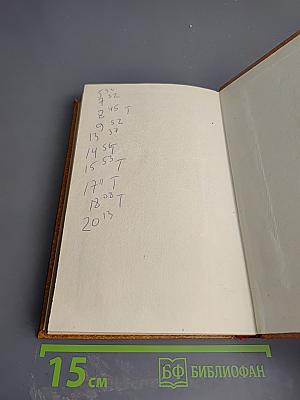 5 30
7 32
8 45 T
9 52
13 37
14 56 T
15 53 T
17 11 T
18 08 T
20 13
15 см
БФ БИБЛИОФАН